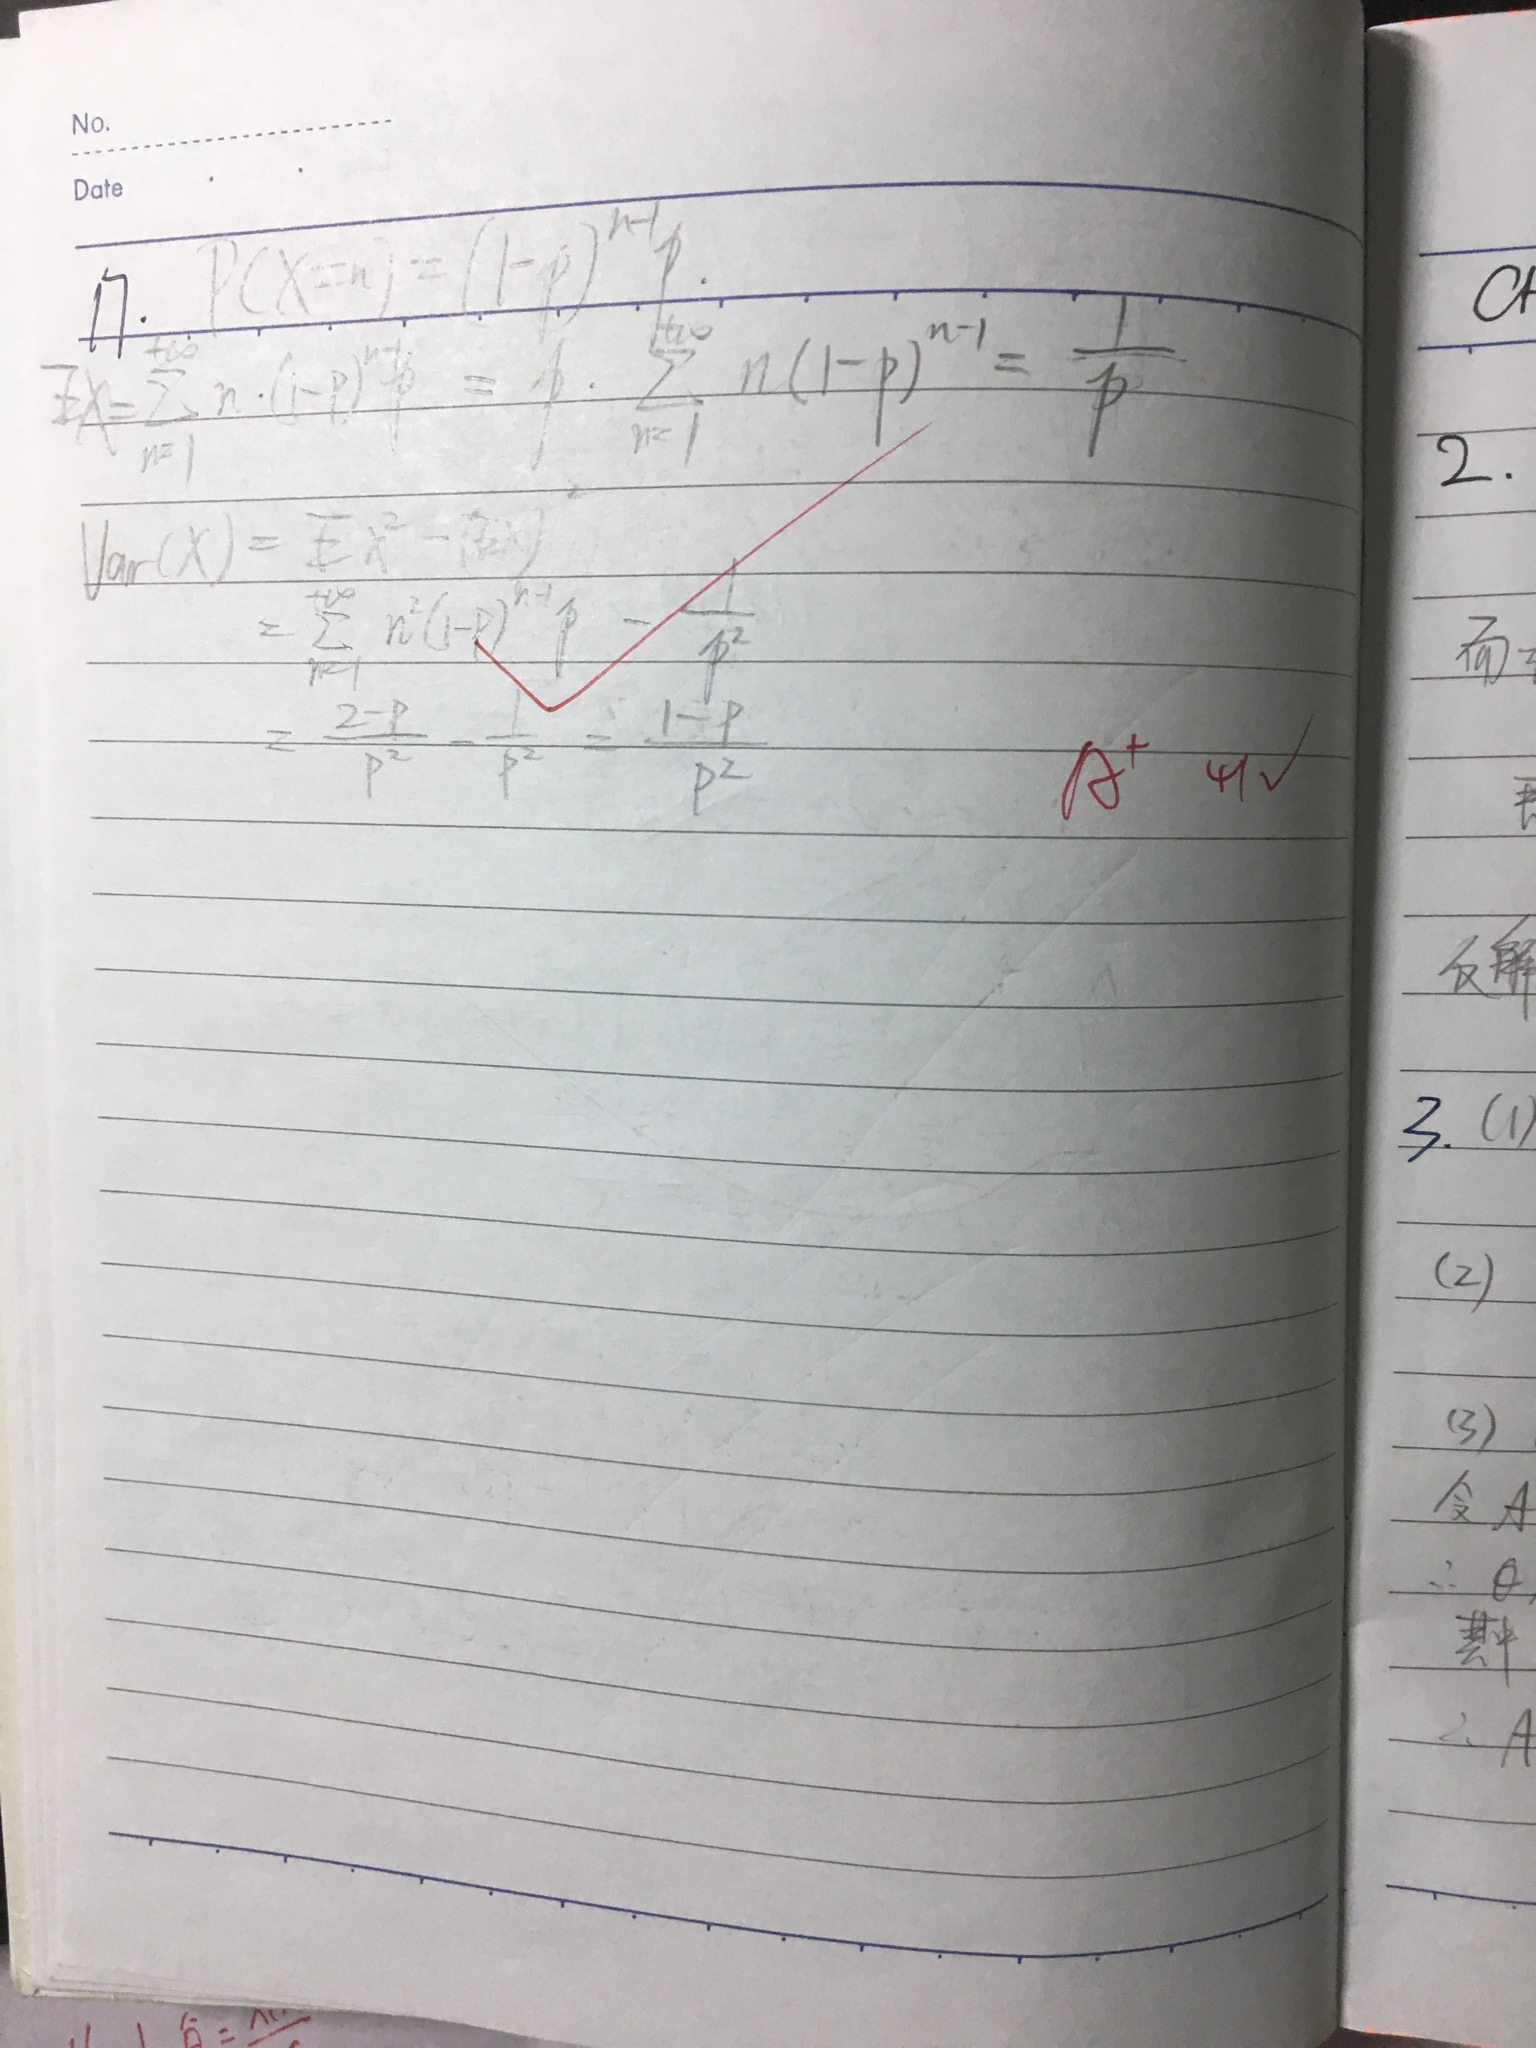 No.
Date
17. P(X=n) = (1-p)^{n-1} p.
EX = \sum_{n=1}^{+∞} n·(1-p)^{n-1} p = p · \sum_{n=1}^{+∞} n(1-p)^{n-1} = \frac{1}{p}
Var(X) = EX² - (EX)²
= \sum_{n=1}^{+∞} n²(1-p)^{n-1} p - \frac{1}{p²}
= \frac{2-p}{p²} - \frac{1}{p²} = \frac{1-p}{p²}
A⁺
CH
2.
而
反解
3. (1)
(2)
(3)
令 A
∴ θ
其中
∴ A